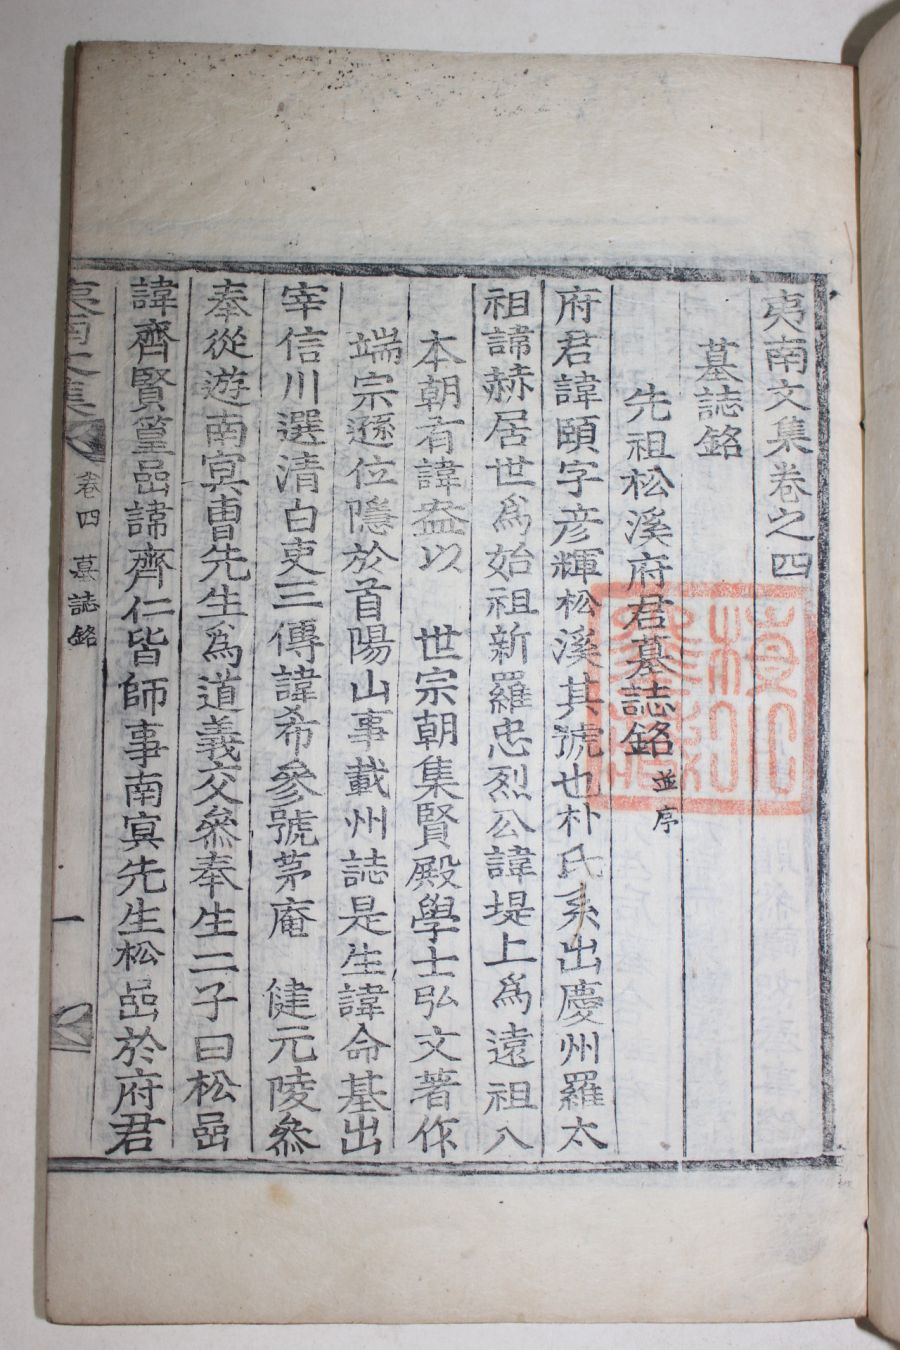 夷南文集卷之四
墓誌銘
先祖松溪府君墓誌銘 並序
府君諱頤字彦輝松溪其號也朴氏系出慶州羅太
祖諱赫居世爲始祖新羅忠烈公諱堤上爲遠祖入
本朝有諱益以 世宗朝集賢殿學士弘文著作
端宗遜位隱於首陽山事載州誌是生諱命基出
宰信川選清白吏三傳諱希參號茅庵 健元陵參
奉從遊南冥曺先生爲道義交參奉生二子曰松嵒
諱齊賢篁嵒諱齊仁皆師事南冥先生松嵒於府君
夷南文集
卷四 墓誌銘
一